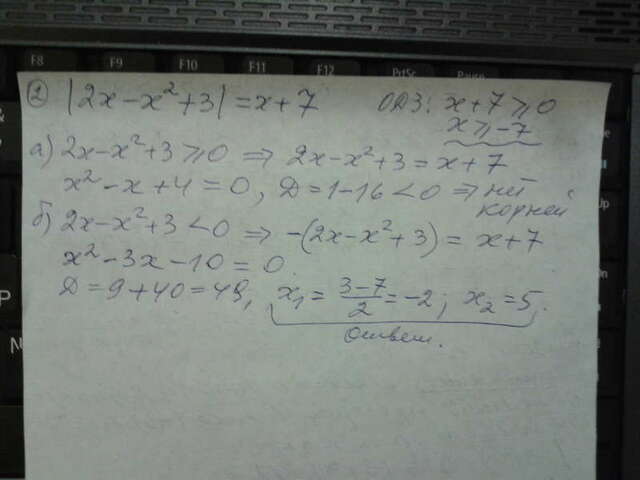 F8 F9 F10 F11 F12 PrtSc Pause
② |2x-x²+3|=x+7 ОДЗ: x+7⩾0
x⩾-7
а) 2x-x²+3⩾0 ⇒ 2x-x²+3=x+7
x²-x+4=0, Д=1-16<0 ⇒ нет
корней
б) 2x-x²+3<0 ⇒ -(2x-x²+3)=x+7
x²-3x-10=0
Д=9+40=49, x₁=\frac{3-7}{2}=-2; x₂=5.
Ответ.